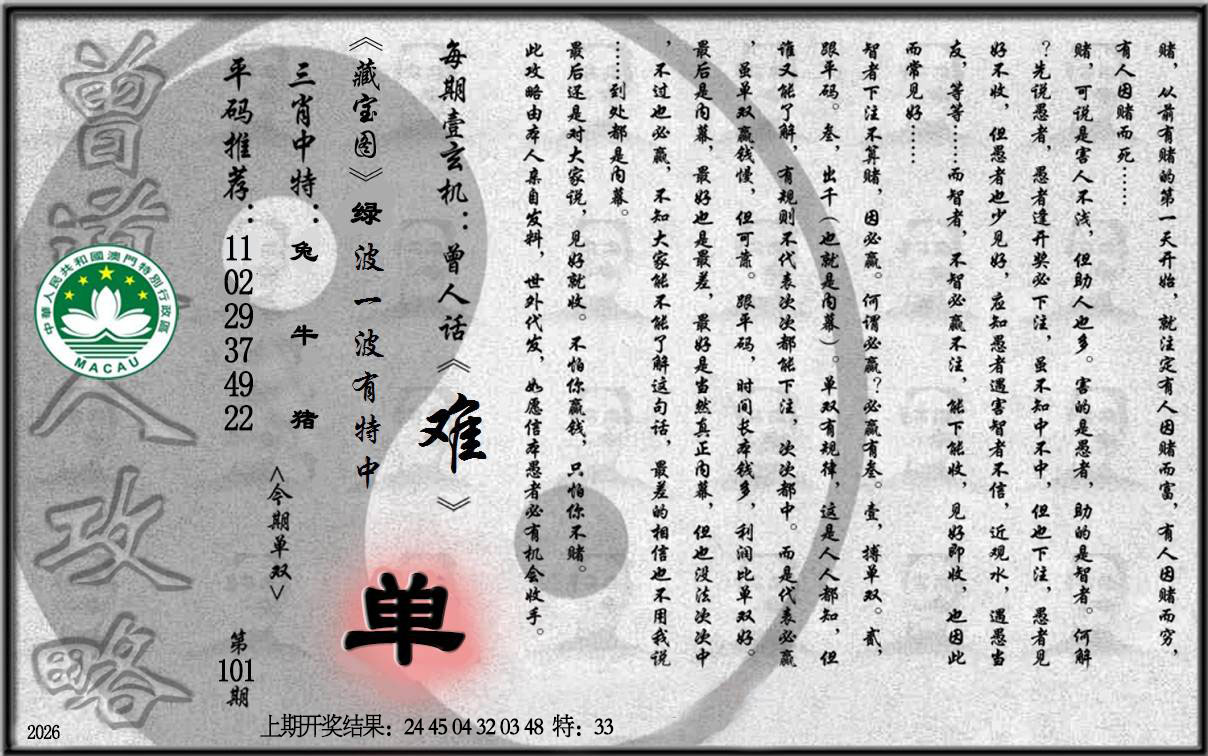 赌，从前有赌的第一天开始，就注定有人因赌而富，有人因赌而穷，
有人因赌而死……
赌，可说是害人不浅，但助人也多。害的是愚者，助的是智者。何解
？先说愚者，愚者逢开奖必下注，虽不知中不中，但也下注，愚者见
好不收，但愚者也少见好，应知愚者遇害智者不信，近观水，遇愚当
友，等等……而智者，不智必赢不注，能下能收，见好即收，也因此
而常见好……
智者下注不算赌，因必赢。何谓必赢？必赢有叁。壹，搏单双。贰，
跟平码。叁，出千（也就是内幕）。单双有规律，这是人人都知，但
谁又能了解，有规则不代表次次都能下注，次次都中。而是代表必赢
，虽单双赢钱慢，但可靠。跟平码，时间长本钱多，利润比单双好。
最后是内幕，最好也是最差，最好是当然真正内幕，但也没法次次中
，不过也必赢，不知大家能不能了解这句话，最差的相信也不用我说
……到处都是内幕。
最后还是对大家说，见好就收。不怕你赢钱，只怕你不赌。
此攻略由本人亲自发料，世外代发，如愿信本愚者必有机会收手。
每期壹玄机：曾人话《难》
《藏宝图》绿波一波有特中
单
三肖中特：兔牛猪
<今期单双>
平码推荐：11 02 29 37 49 22
第101期
曾道人攻略
中華人民共和國澳門特別行政區
MACAU
上期开奖结果：24 45 04 32 03 48 特：33
2026